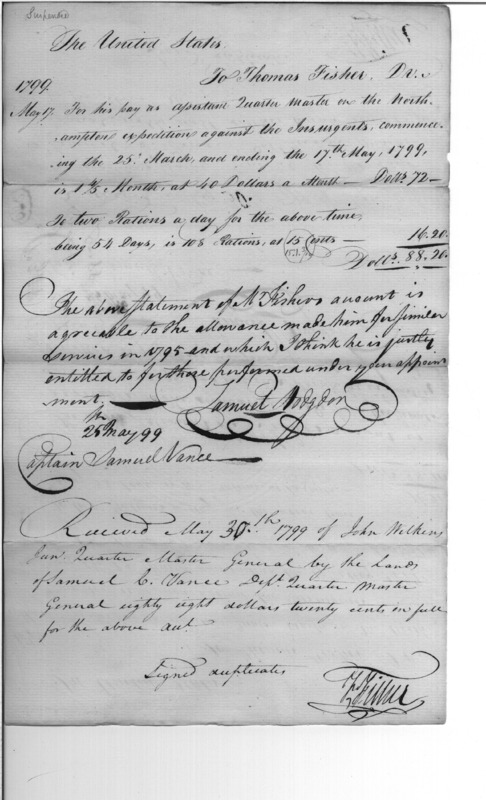 Suspended
The United States.
To Thomas Fisher, Dr.
1799
May 17. For his pay as assistant Quarter Master on the North-
ampton expedition against the Insurgents, commenc-
ing the 25th March, and ending the 17th May, 1799,
is 1 4/5 Month, at 40 Dollars a Month — Dolls. 72 —
To two Rations a day for the above time,
being 54 Days, is 108 Rations, at 15 Cents — 16.20.
Dolls. 88.20.
The above statement of Mr. Fishers account is
agreeable to the allowance made him for similar
services in 1795 and which I think he is justly
entitled to for those performed under your appoint
ment, — Samuel Hodgdon
25 May 99
Captain Samuel Vance —
Received May 30th. 1799 of John Wilkins
Junr. Quarter Master General by the hands
of Samuel C. Vance Dept. Quarter Master
General eighty eight dollars twenty cents in full
for the above act.
Signed duplicates
Ths Fisher